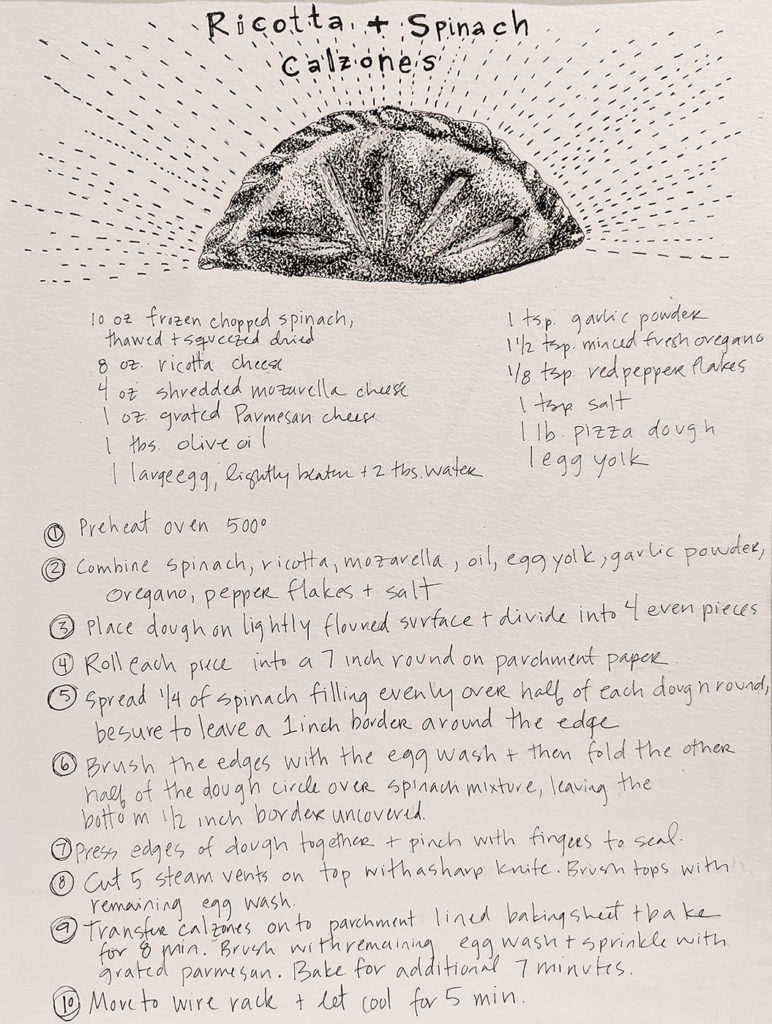 Ricotta + Spinach
Calzones
10 oz frozen chopped spinach,
thawed + squeezed dried
8 oz. ricotta cheese
4 oz shredded mozarella cheese
1 oz. grated Parmesan cheese
1 tbs. olive oil
1 large egg, lightly beaten + 2 tbs. water
1 tsp. garlic powder
1 1/2 tsp. minced fresh oregano
1/8 tsp. red pepper flakes
1 tsp salt
1 lb. pizza dough
1 egg yolk
① Preheat oven 500°
② Combine spinach, ricotta, mozarella, oil, egg yolk, garlic powder,
oregano, pepper flakes + salt
③ Place dough on lightly floured surface + divide into 4 even pieces
④ Roll each piece into a 7 inch round on parchment paper.
⑤ Spread 1/4 of spinach filling evenly over half of each dough round,
be sure to leave a 1 inch border around the edge
⑥ Brush the edges with the egg wash + then fold the other
half of the dough circle over spinach mixture, leaving the
bottom 1/2 inch border uncovered.
⑦ Press edges of dough together + pinch with fingers to seal.
⑧ Cut 5 steam vents on top with a sharp knife. Brush tops with
remaining egg wash.
⑨ Transfer calzones onto parchment lined baking sheet + bake
for 8 min. Brush with remaining egg wash + sprinkle with
grated parmesan. Bake for additional 7 minutes.
⑩ Move to wire rack + let cool for 5 min.